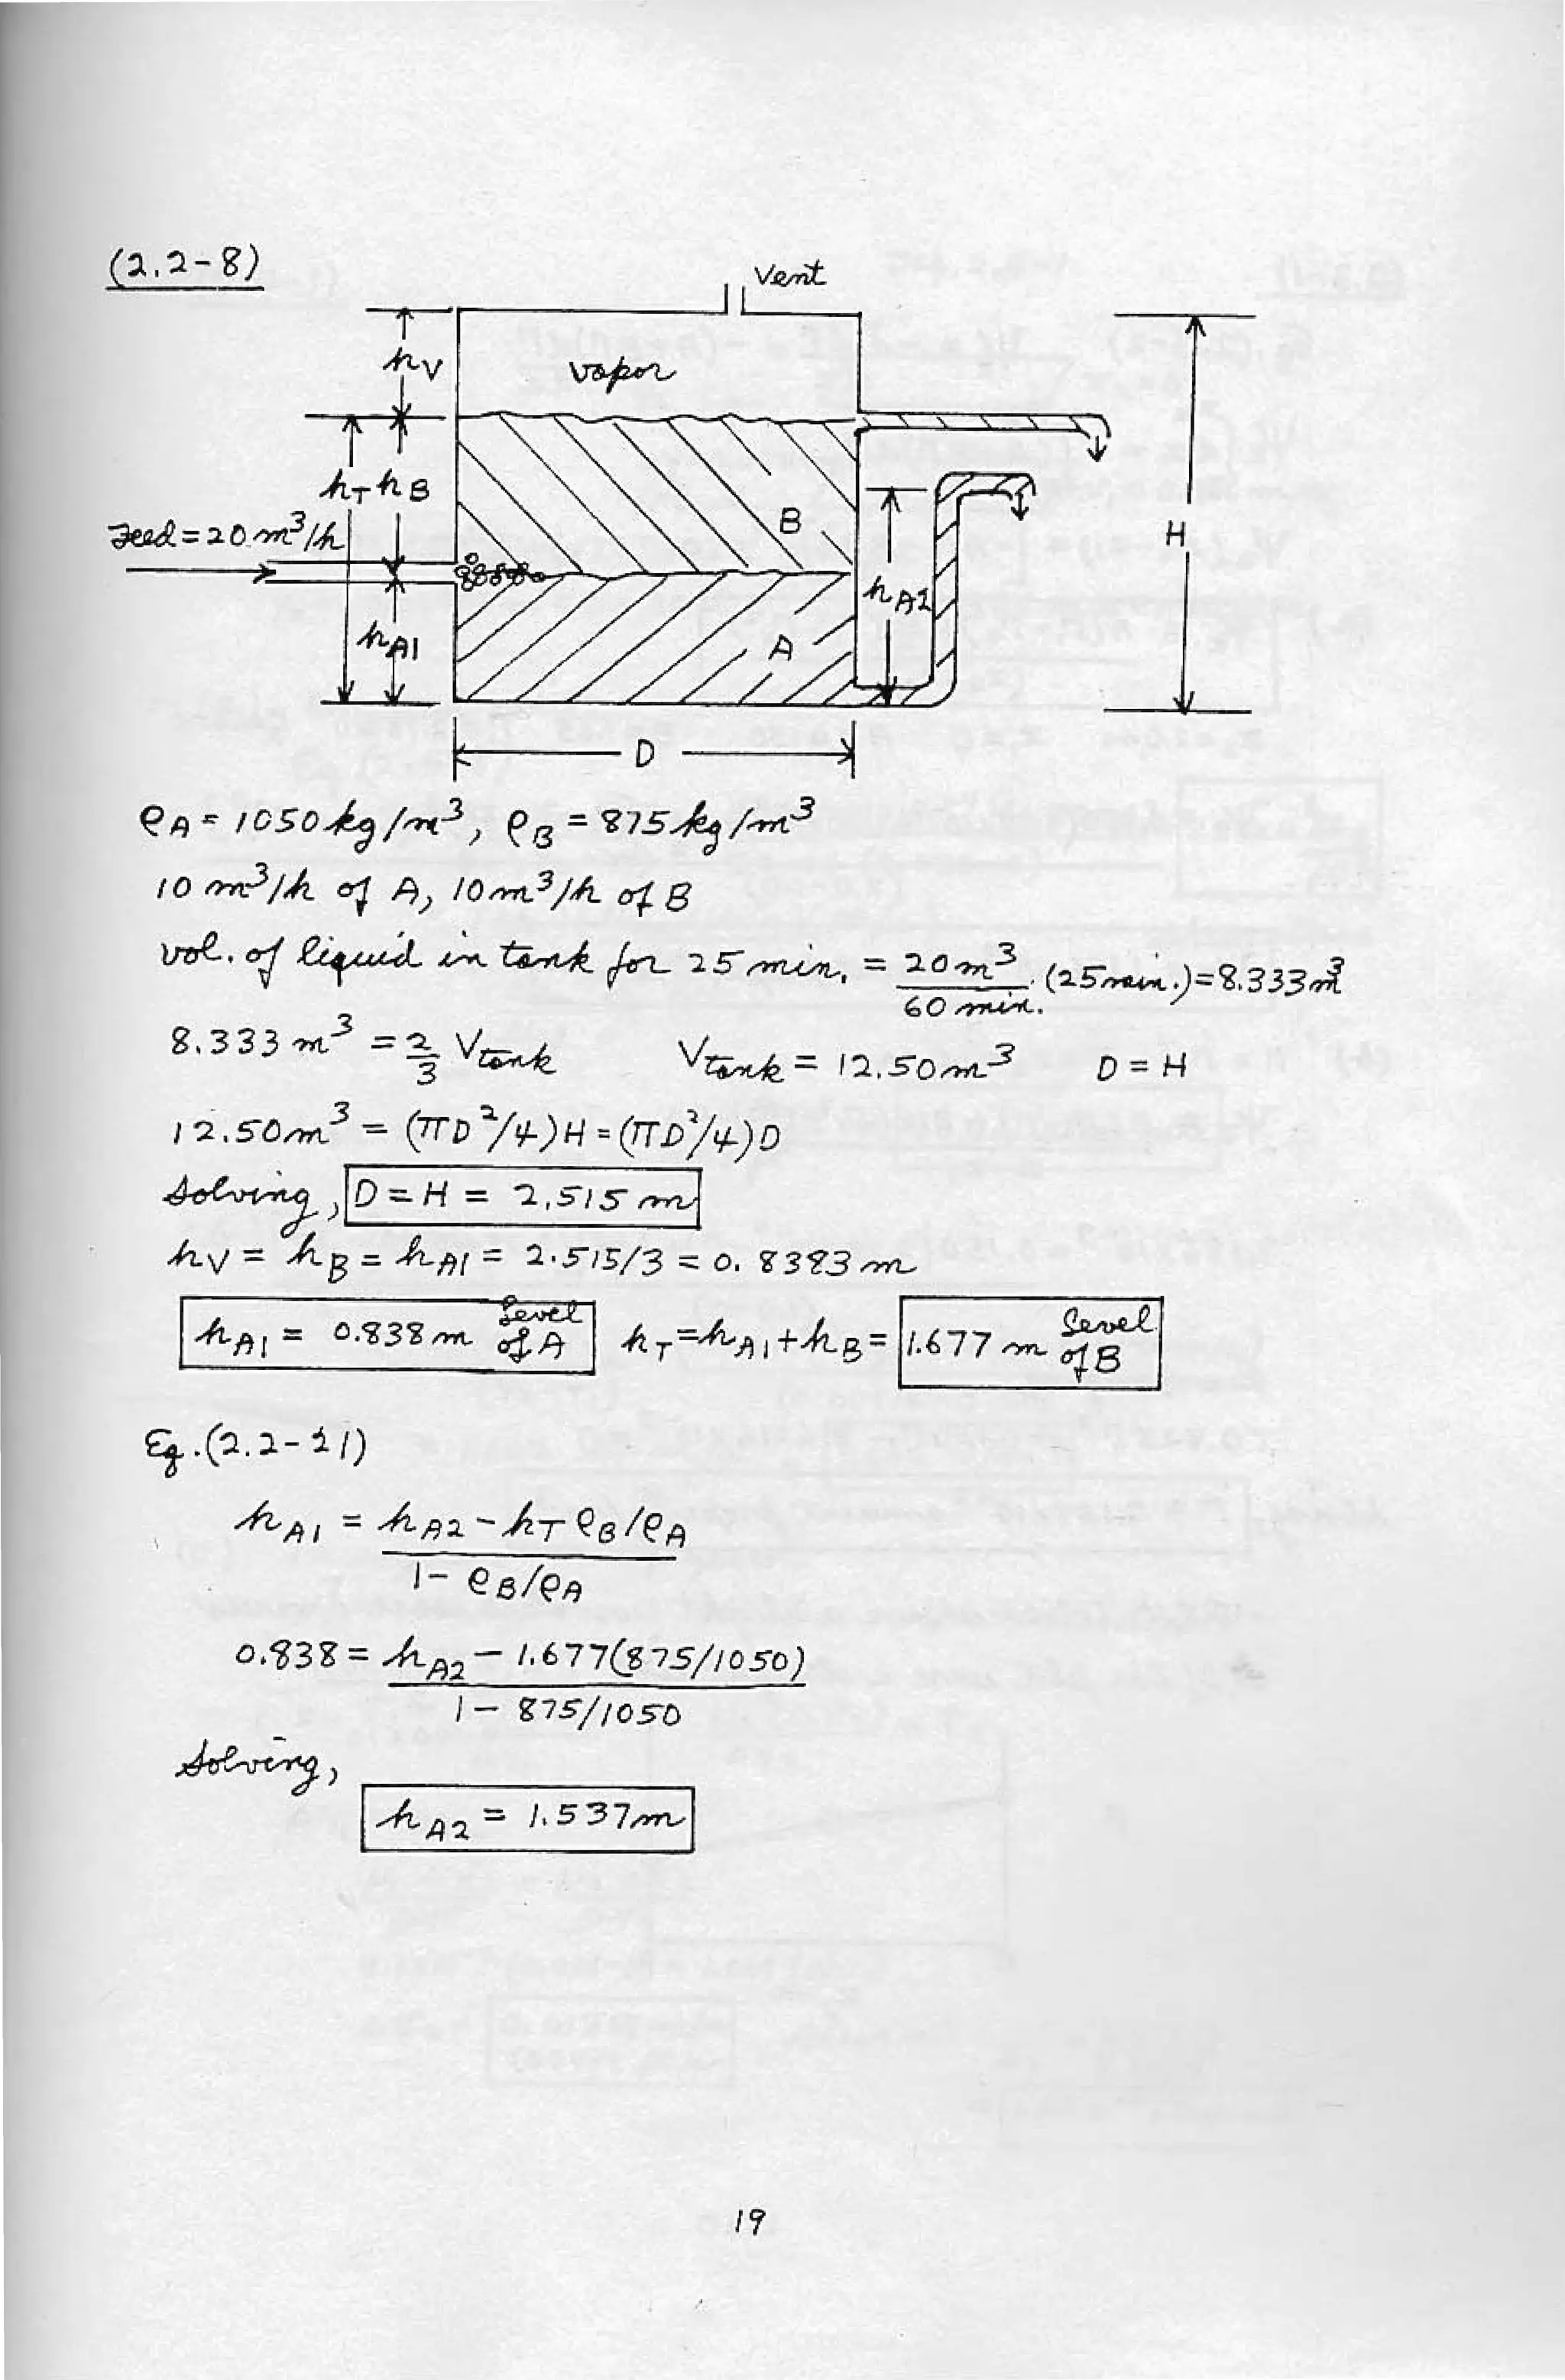 (2.2-8)
Vent
hV
vapor
hT hB
Feed = 20 m³/h
B
H
hA2
hA1
A
D
ρA = 1050 kg/m³, ρB = 875 kg/m³
10 m³/h of A, 10 m³/h of B
vol. of liquid in tank for 25 min. = 20 m³/60 min. (25 min.) = 8.333 m³
8.333 m³ = 2/3 Vtank Vtank = 12.50 m³ D = H
12.50 m³ = (πD²/4)H = (πD²/4)D
Solving, D = H = 2.515 m
hV = hB = hA1 = 2.515/3 = 0.8383 m
hA1 = 0.838 m level of A hT = hA1 + hB = 1.677 m level of B
Eq. (2.2-21)
hA1 = hA2 - hT ρB/ρA
1 - ρB/ρA
0.838 = hA2 - 1.677(875/1050)
1 - 875/1050
Solving,
hA2 = 1.537 m
19